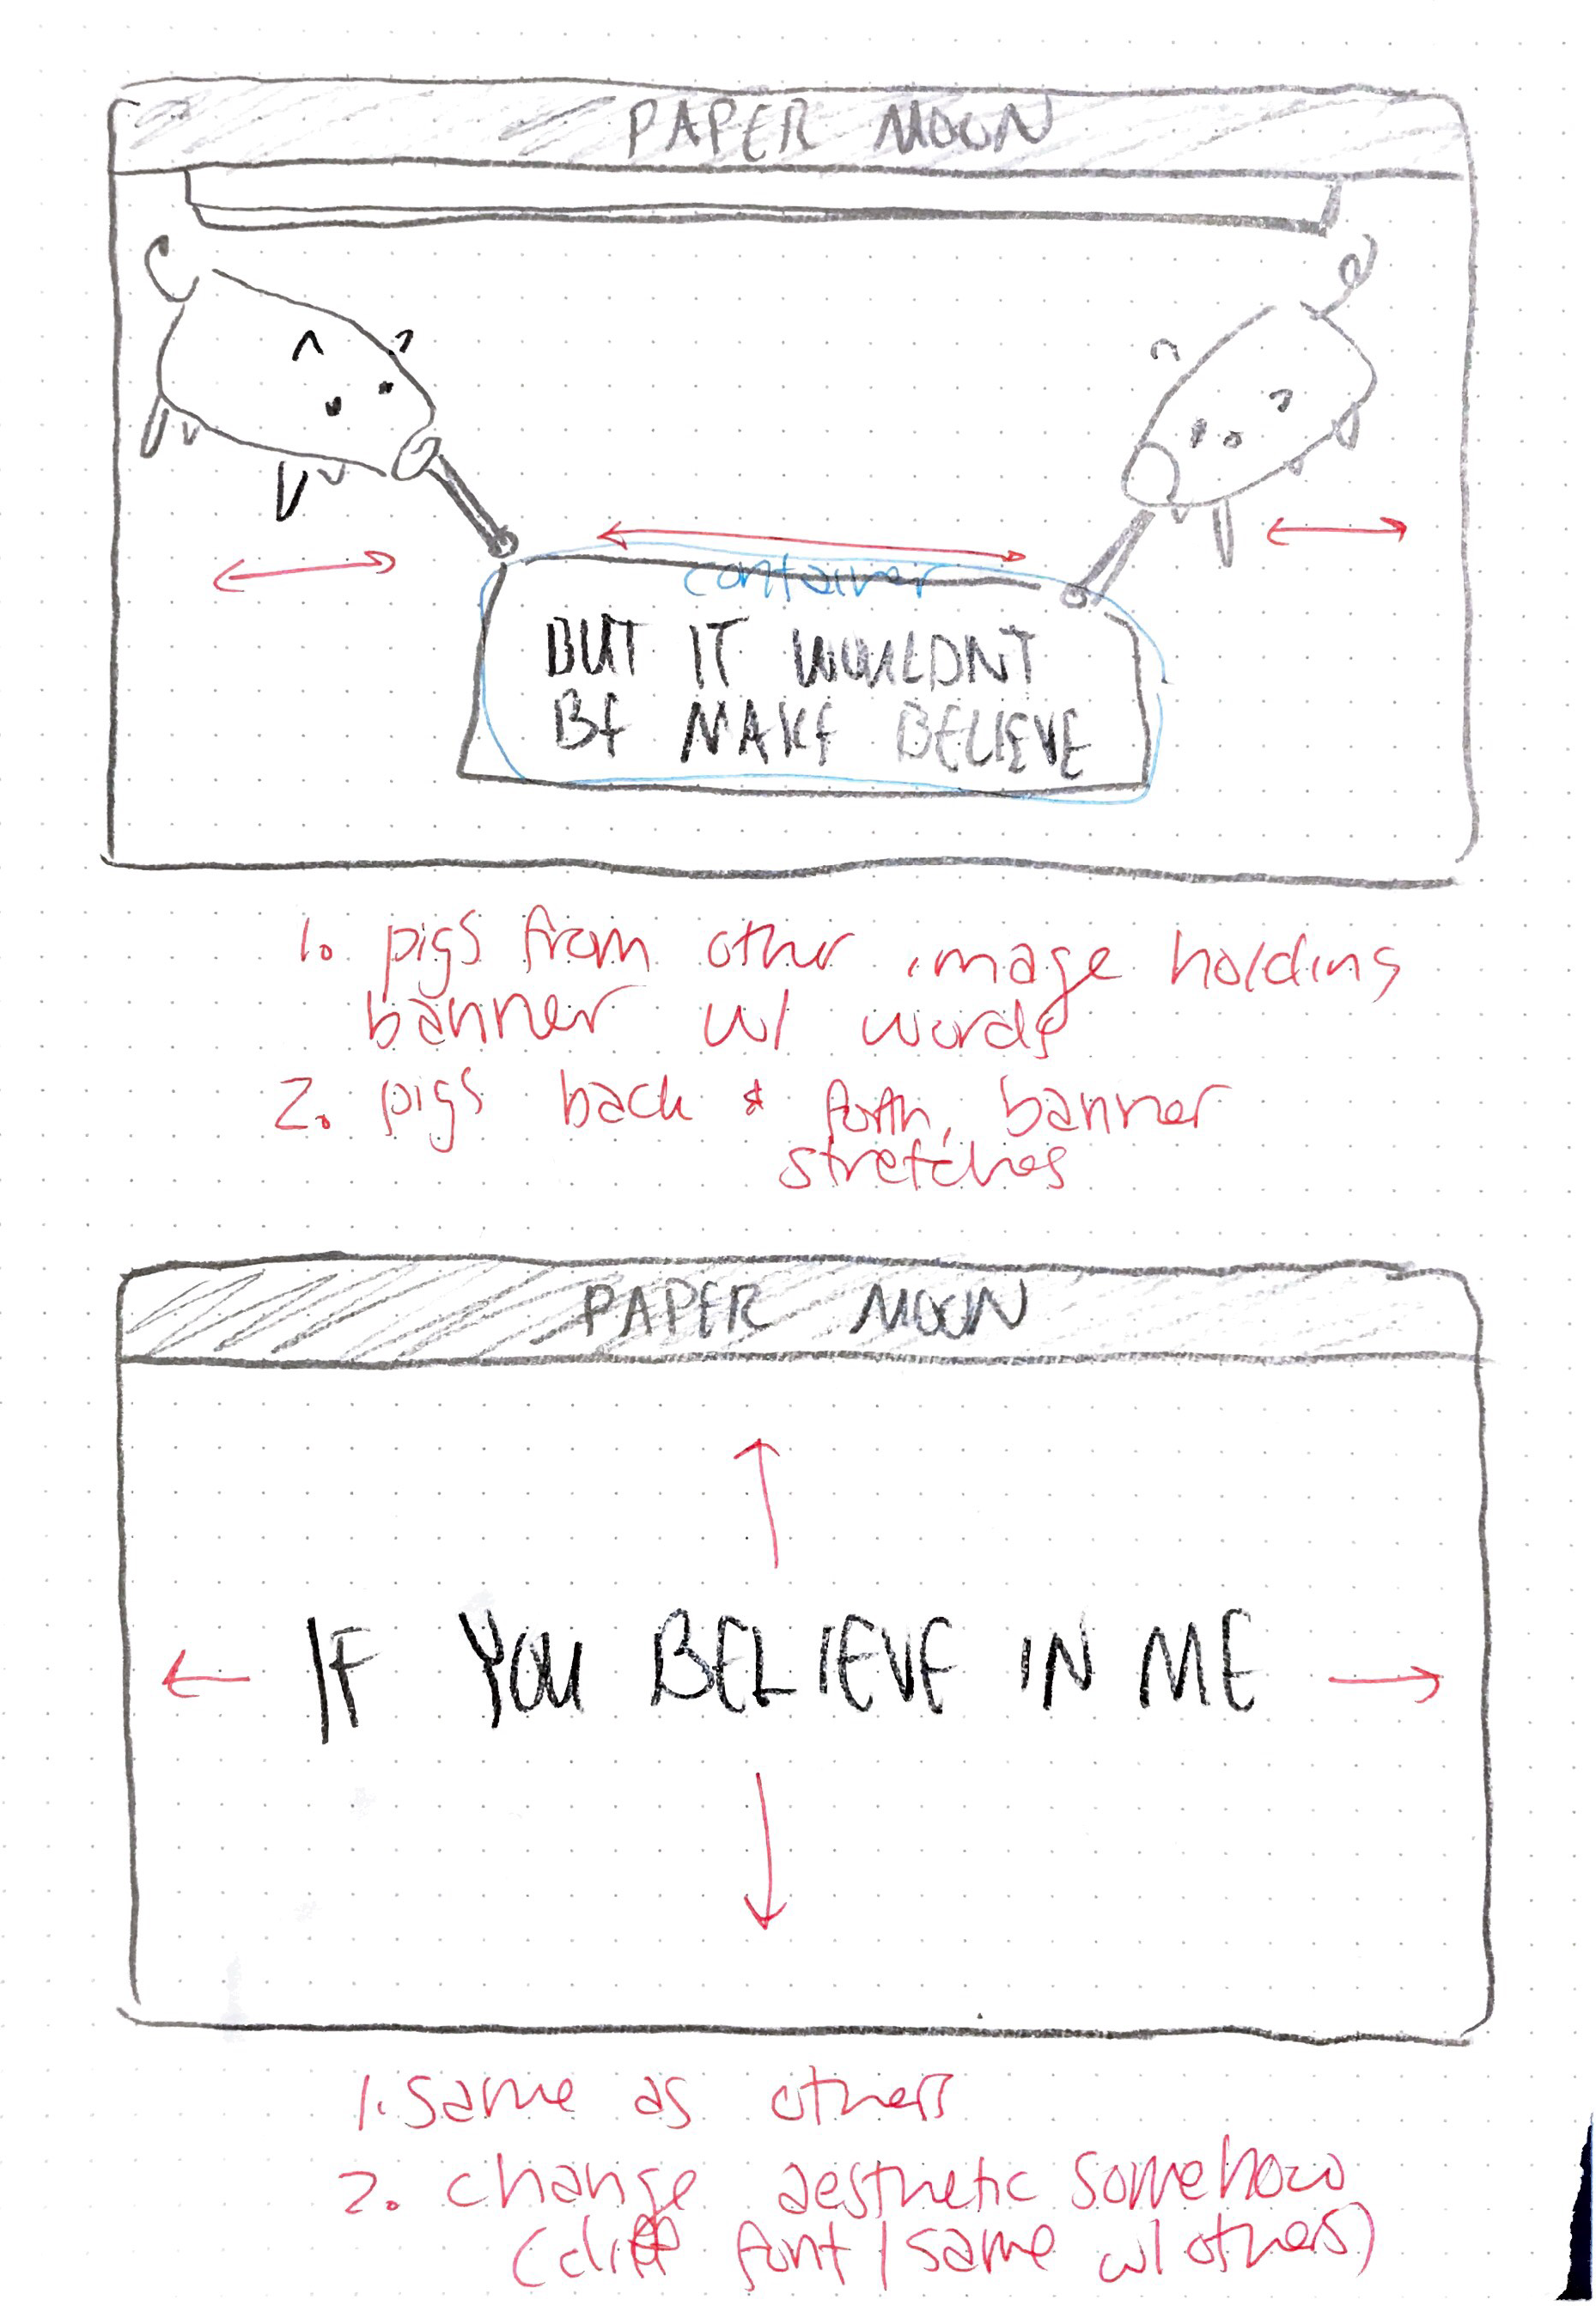 PAPER MOON
container
BUT IT WOULDNT
BE MAKE BELIEVE
1. pigs from other image holding
banner w/ words
2. pigs back & forth, banner
stretches
PAPER MOON
IF YOU BELIEVE IN ME
1. same as others
2. change aesthetic somehow
(diff font / same w/ others)